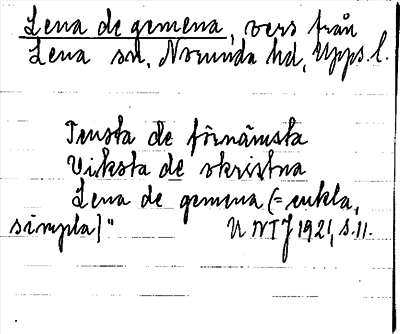 Lena de gemena, vers från
Lena sn, Norunda hd, Upps. l.
Tensta de förnämsta
Viksta de skrirtna
Lena de gemena (= enkla,
simpla)"
UNT J 1921, s. 11.